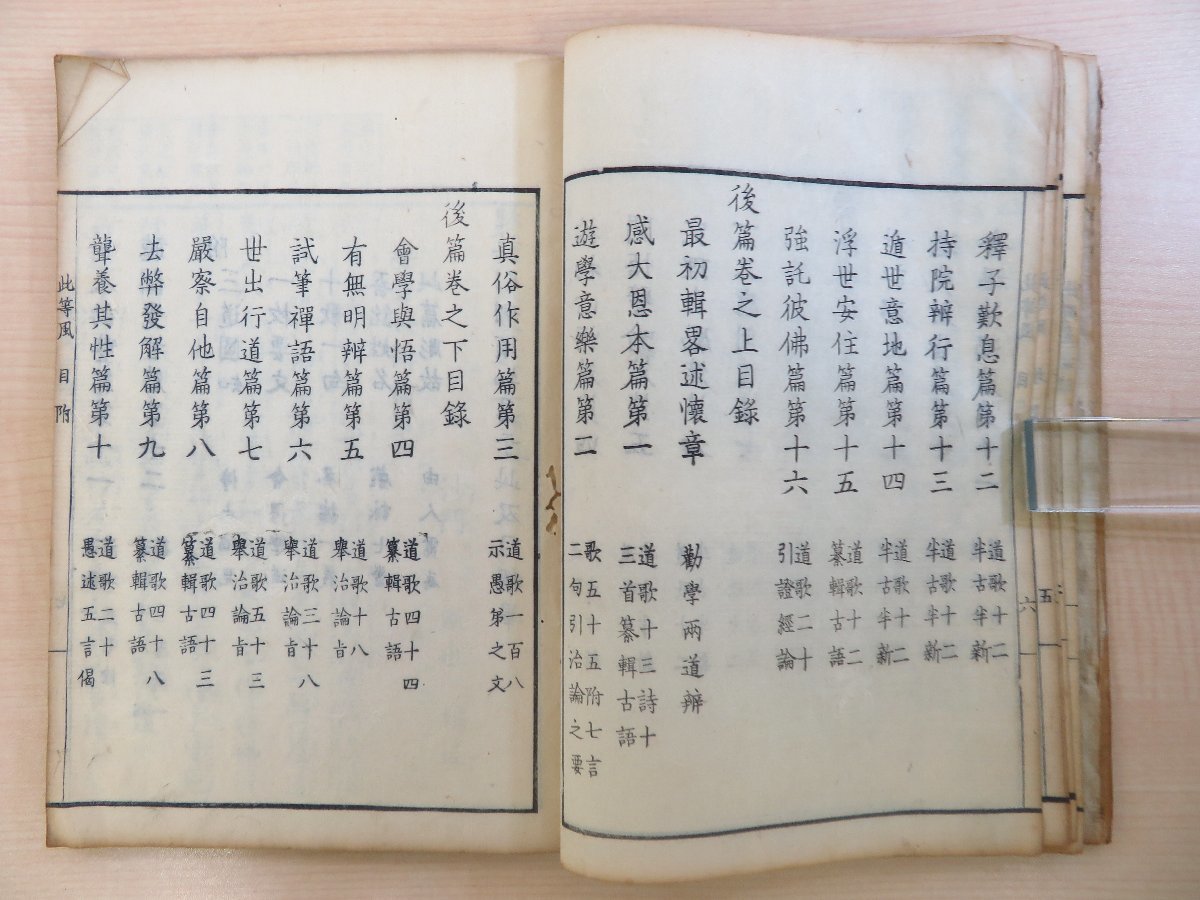 釋子歎息篇第十二 道歌十二半古半新
持院辨行篇第十三 道歌十二半古半新
遁世意地篇第十四 道歌十二半古半新
浮世安住篇第十五 道歌十二纂輯古語
強託彼佛篇第十六 道歌二十引證經論
後篇巻之上目錄
最初輯畧述懐章 勸學兩道辨
感大恩本篇第一 道歌十三詩十三首纂輯古語
遊學意樂篇第二 歌五十五附七言二句引治論之要
真俗作用篇第三 道歌一百八示愚第之文
後篇巻之下目錄
會學與悟篇第四 道歌四十四纂輯古語
有無明辨篇第五 道歌十八舉治論旨
試筆禪語篇第六 道歌三十八舉治論旨
世出行道篇第七 道歌五十三舉治論旨
嚴察自他篇第八 道歌四十三纂輯古語
去弊發解篇第九 道歌四十八纂輯古語
聾養其性篇第十 道歌二十愚述五言偈
此等風 目 附
五
六